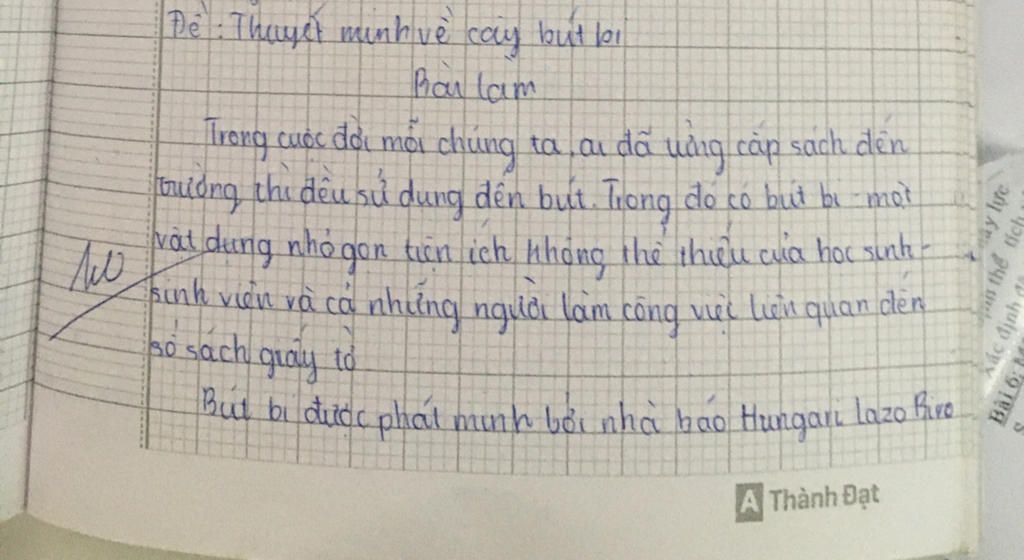 Đề: Thuyết minh về cây bút bi
Bài làm
Trong cuộc đời mỗi chúng ta, ai đã từng cắp sách đến
trường thì đều sử dụng đến bút. Trong đó có bút bi - một
vật dụng nhỏ gọn tiện ích không thể thiếu của học sinh -
sinh viên và cả những người làm công việc liên quan đến
sổ sách giấy tờ
Bút bi được phát minh bởi nhà báo Hungari Lazo Biro
A Thành Đạt
ây lực
tích
xác định
Bài 6: